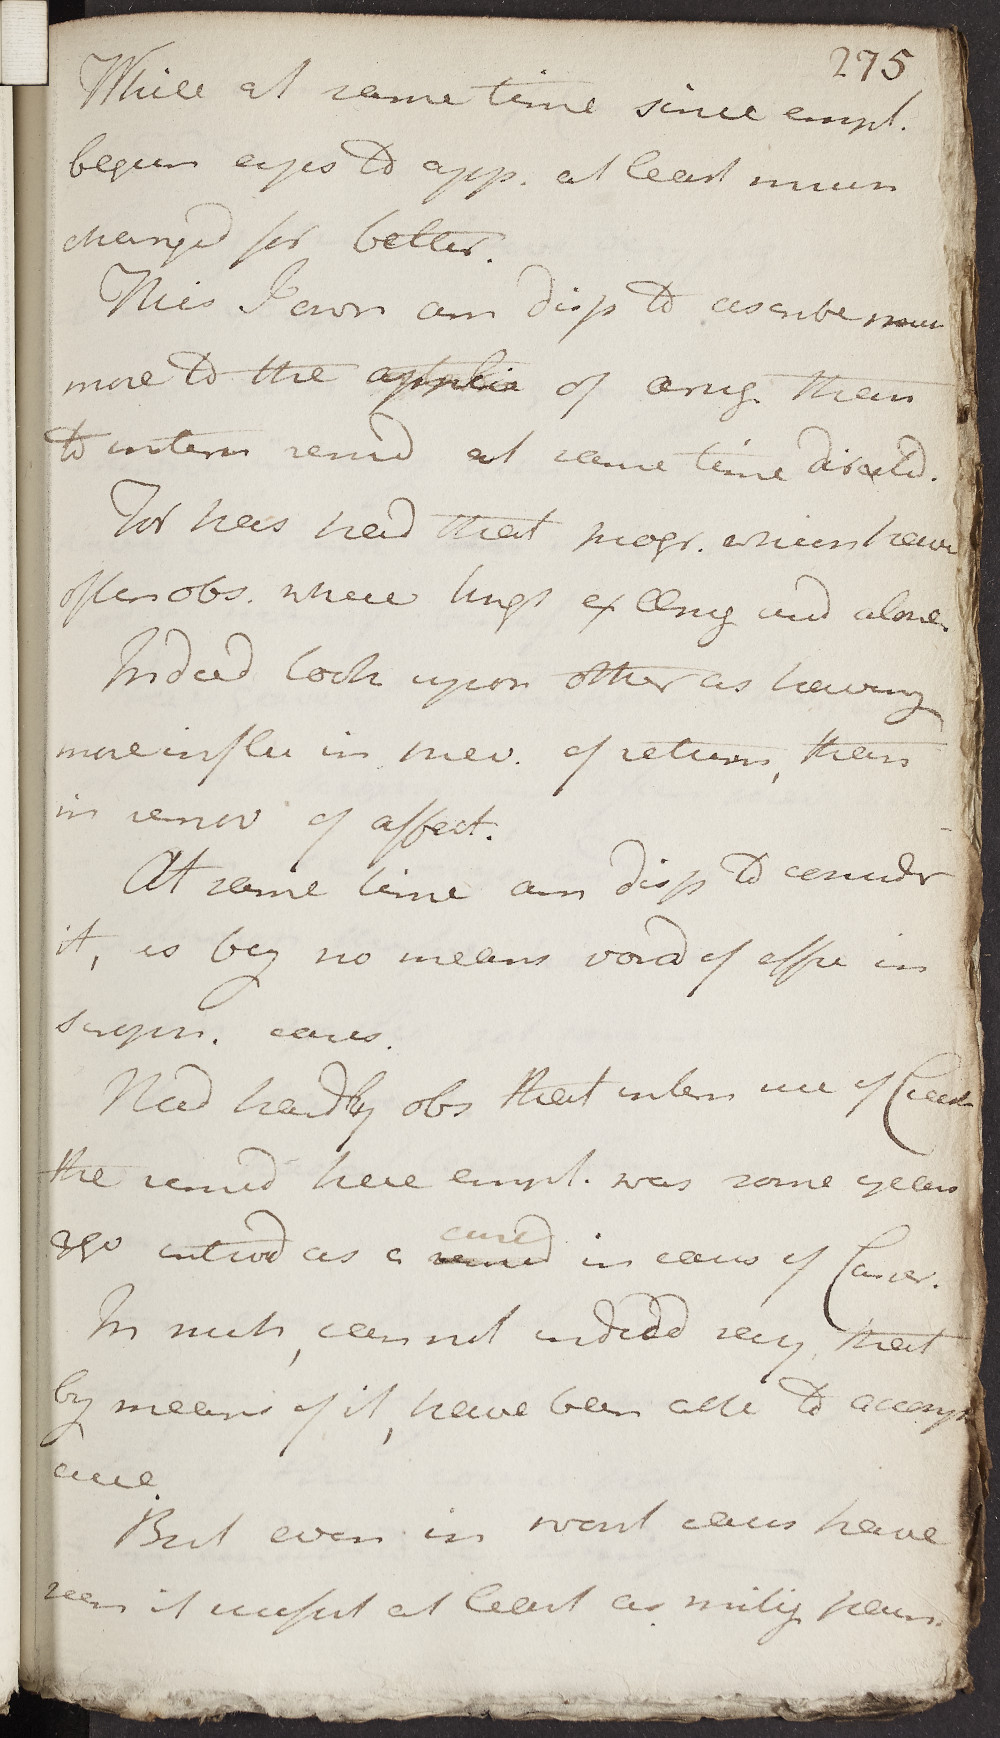 275
While at same time since empl.
begun eyes to app. at least much
changed for better.
This I own am disp to ascribe much
more to the applic of ung. than
to intern remed at same time directed.
For has had that progr. which have
often obs. where ungt used alone.
Indeed look upon other as having
more influ in prev. of return, than
in remov of affect.
At same time am disp to consider
it, as by no means void of effic in
such cases.
Need hardly obs that intern use of
the remed here empl. was some years
ago introd as a remed cure in cases of Cancer.
In such, can not indeed say, that
by means of it, have been able to accomp
cure.
But even in worst cases have
seen it useful at least as mitig pain.